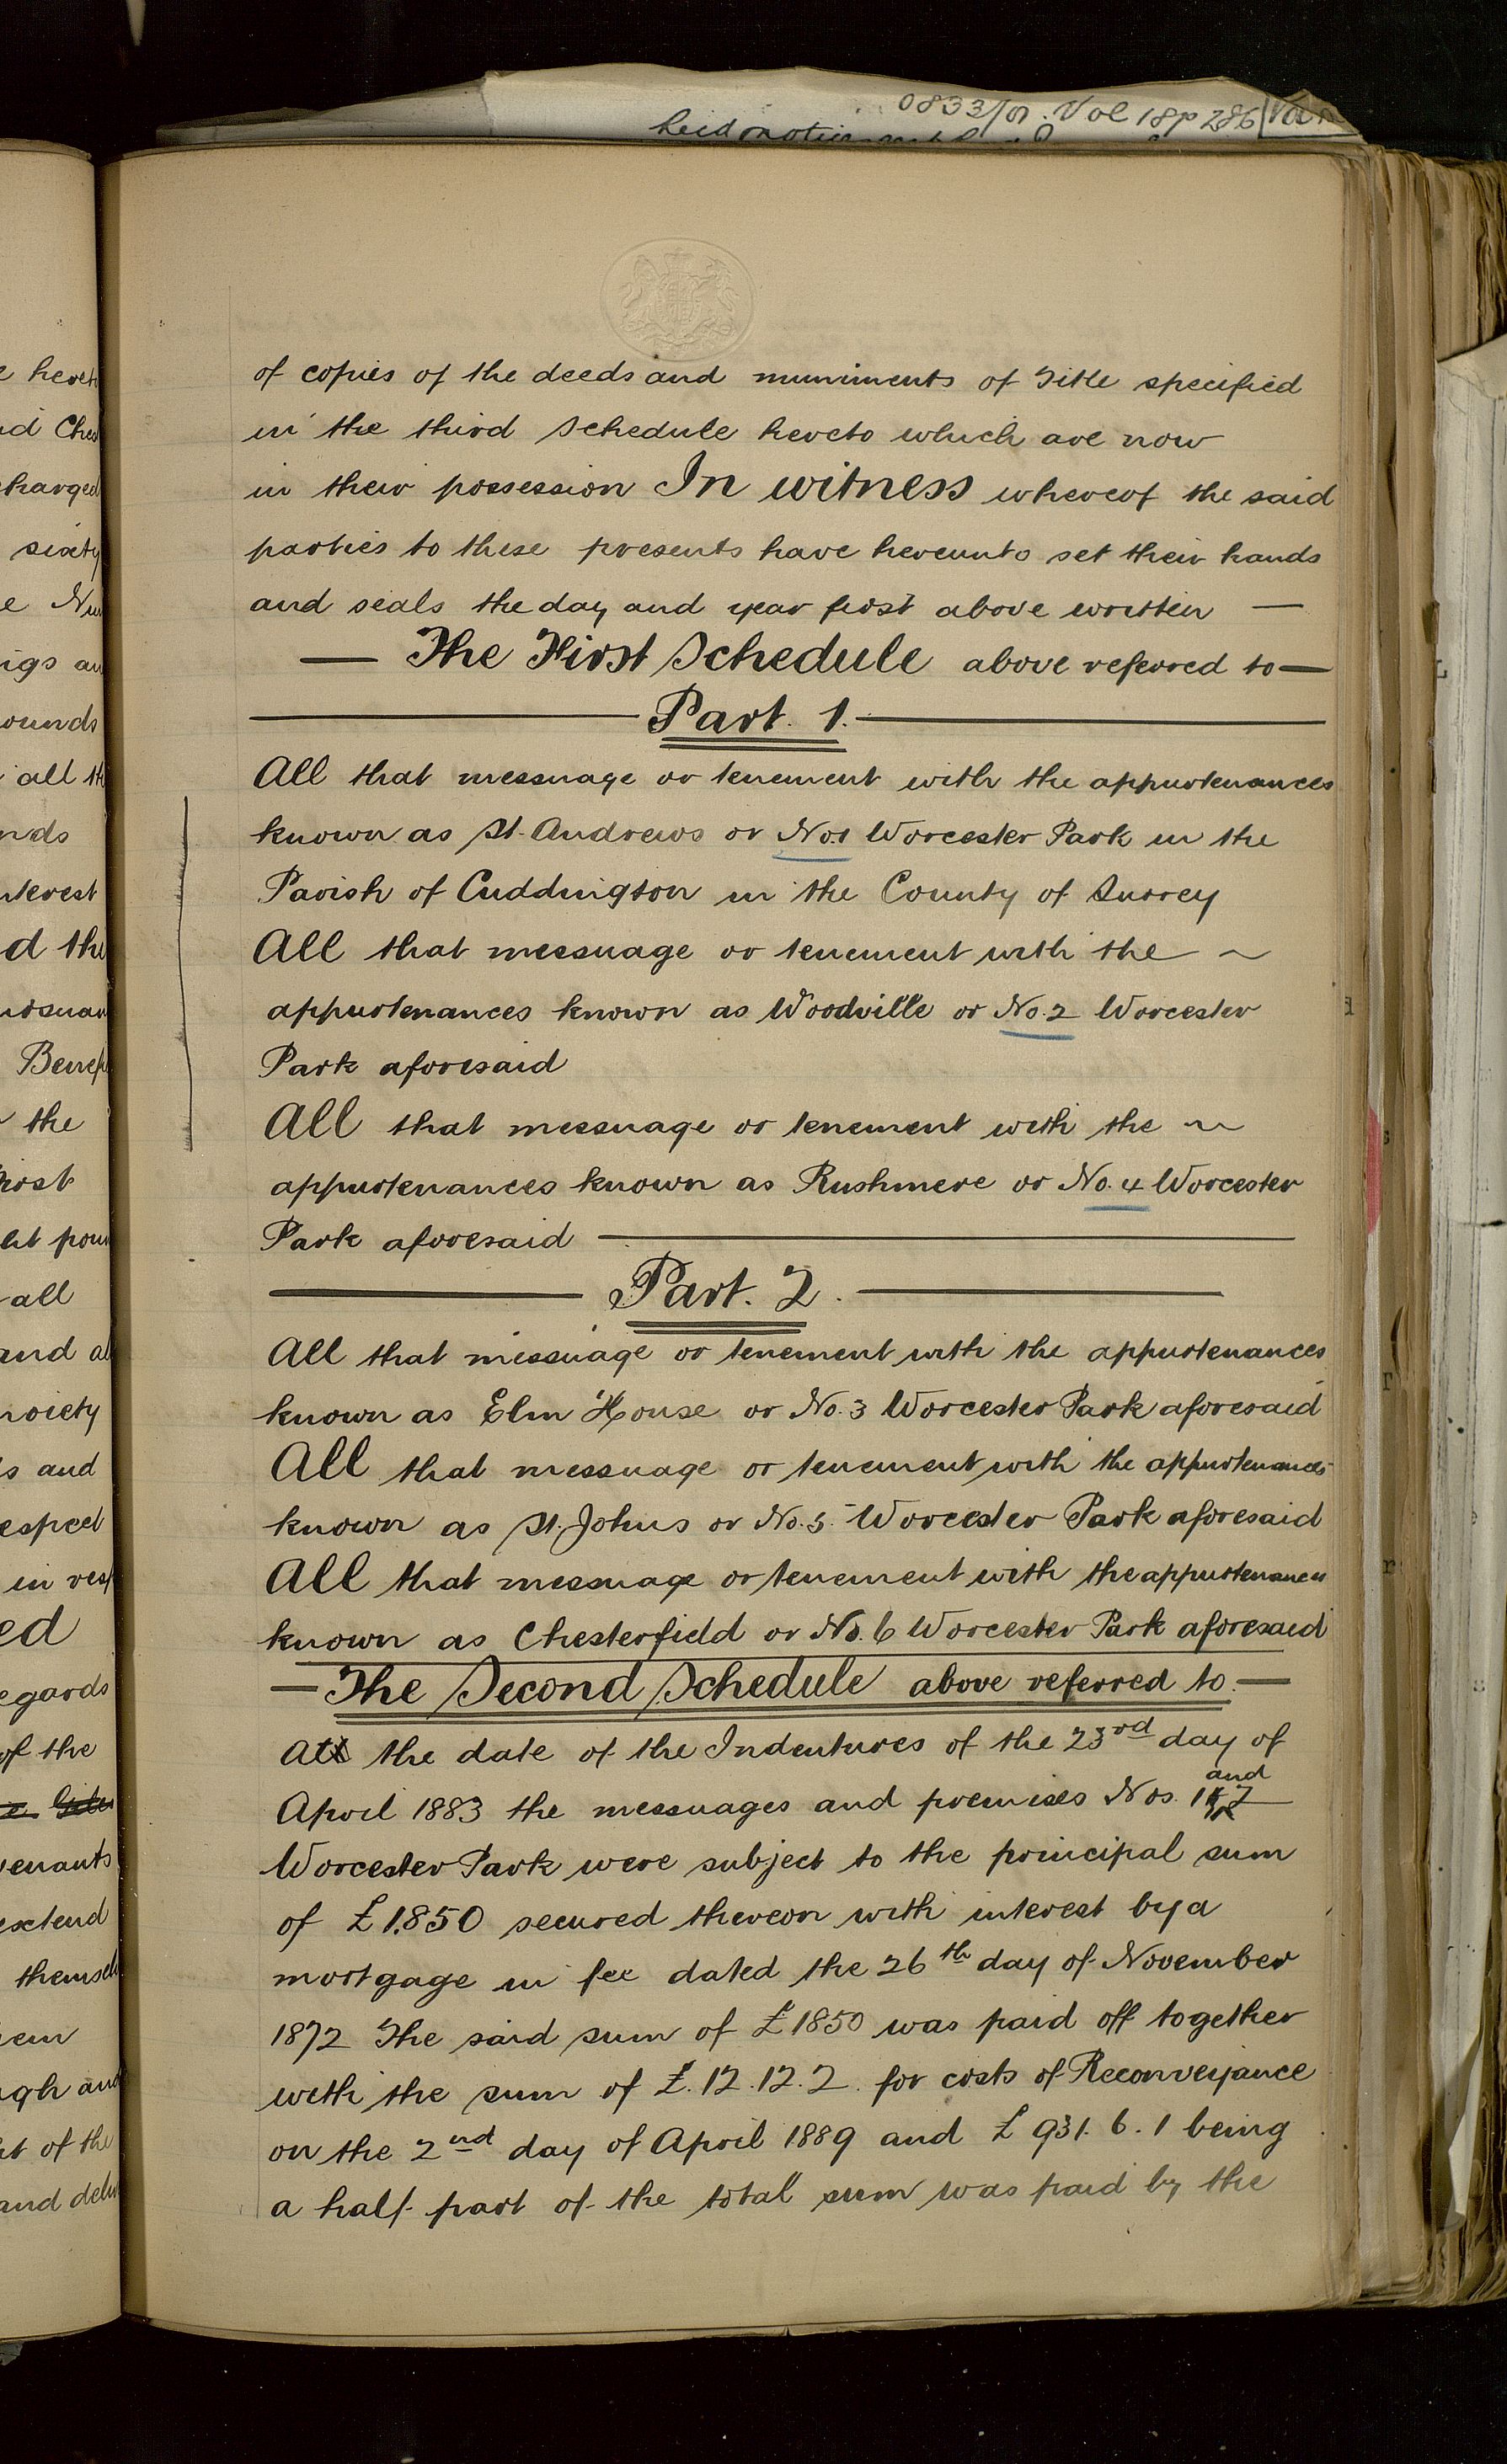 0833/9. Vol 18p 286
of copies of the deeds and muniments of Title specified
in the third Schedule hereto which are now
in their possession In witness whereof the said
parties to these presents have hereunto set their hands
and seals the day and year first above written —
— The First Schedule above referred to —
Part. 1.
All that messuage or tenement with the appurtenances
known as St. Andrews or No.1 Worcester Park in the
Parish of Cuddington in the County of Surrey
All that messuage or tenement with the ~
appurtenances known as Woodville or No. 2 Worcester
Park aforesaid
All that messuage or tenement with the ~
appurtenances known as Rushmere or No. 4 Worcester
Park aforesaid
Part. 2.
All that messuage or tenement with the appurtenances
known as Elm House or No. 3 Worcester Park aforesaid
All that messuage or tenement with the appurtenances
known as St. Johns or No. 5. Worcester Park aforesaid
All that messuage or tenement with the appurtenances
known as Chesterfield or No. 6 Worcester Park aforesaid
— The Second Schedule above referred to. —
At the date of the Indentures of the 23rd day of
April 1883 the messuages and premises Nos. 1 and 2
Worcester Park were subject to the principal sum
of £1850 secured thereon with interest by a
mortgage in fee dated the 26th day of November
1872 The said sum of £1850 was paid off together
with the sum of £.12.12.2. for costs of Reconveyance
on the 2nd day of April 1889 and £931.6.1 being
a half part of the total sum was paid by the